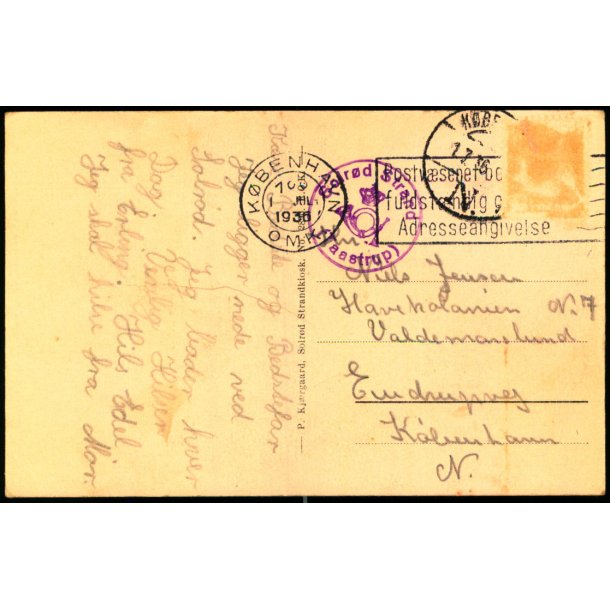 Kære og Bedstefar
Jeg ligger nede ved
Solrød. Jeg bader hver
Dag. Venlig Hilsen
fra Erling. Hils Edel
Jeg skal hilse fra Mor.
P. Kjærgaard, Solrød Strandkiosk.
KØBENHAVN
1 JUL
1936
OMK.
Solrød Strand
(Taastrup)
KØBE
1.7.36
N.
Postvæsenet bø
fuldstændig
Adresseangivelse
Niels Jensen
Havekolonien N. 7
Valdemarslund
Emdrupvej
København
N.